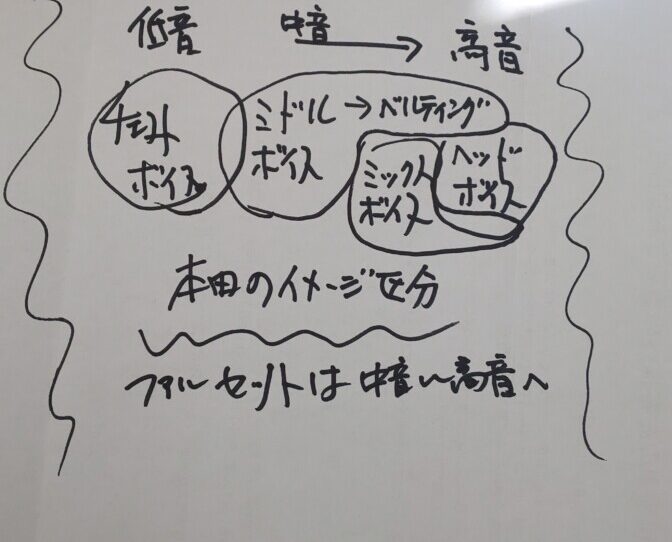 低音 中音 → 高音
チェスト ミドル → ベルティング
ボイス ボイス ミックス ヘッド
ボイス ボイス
本田のイメージ区分
ファルセットは中音〜高音へ